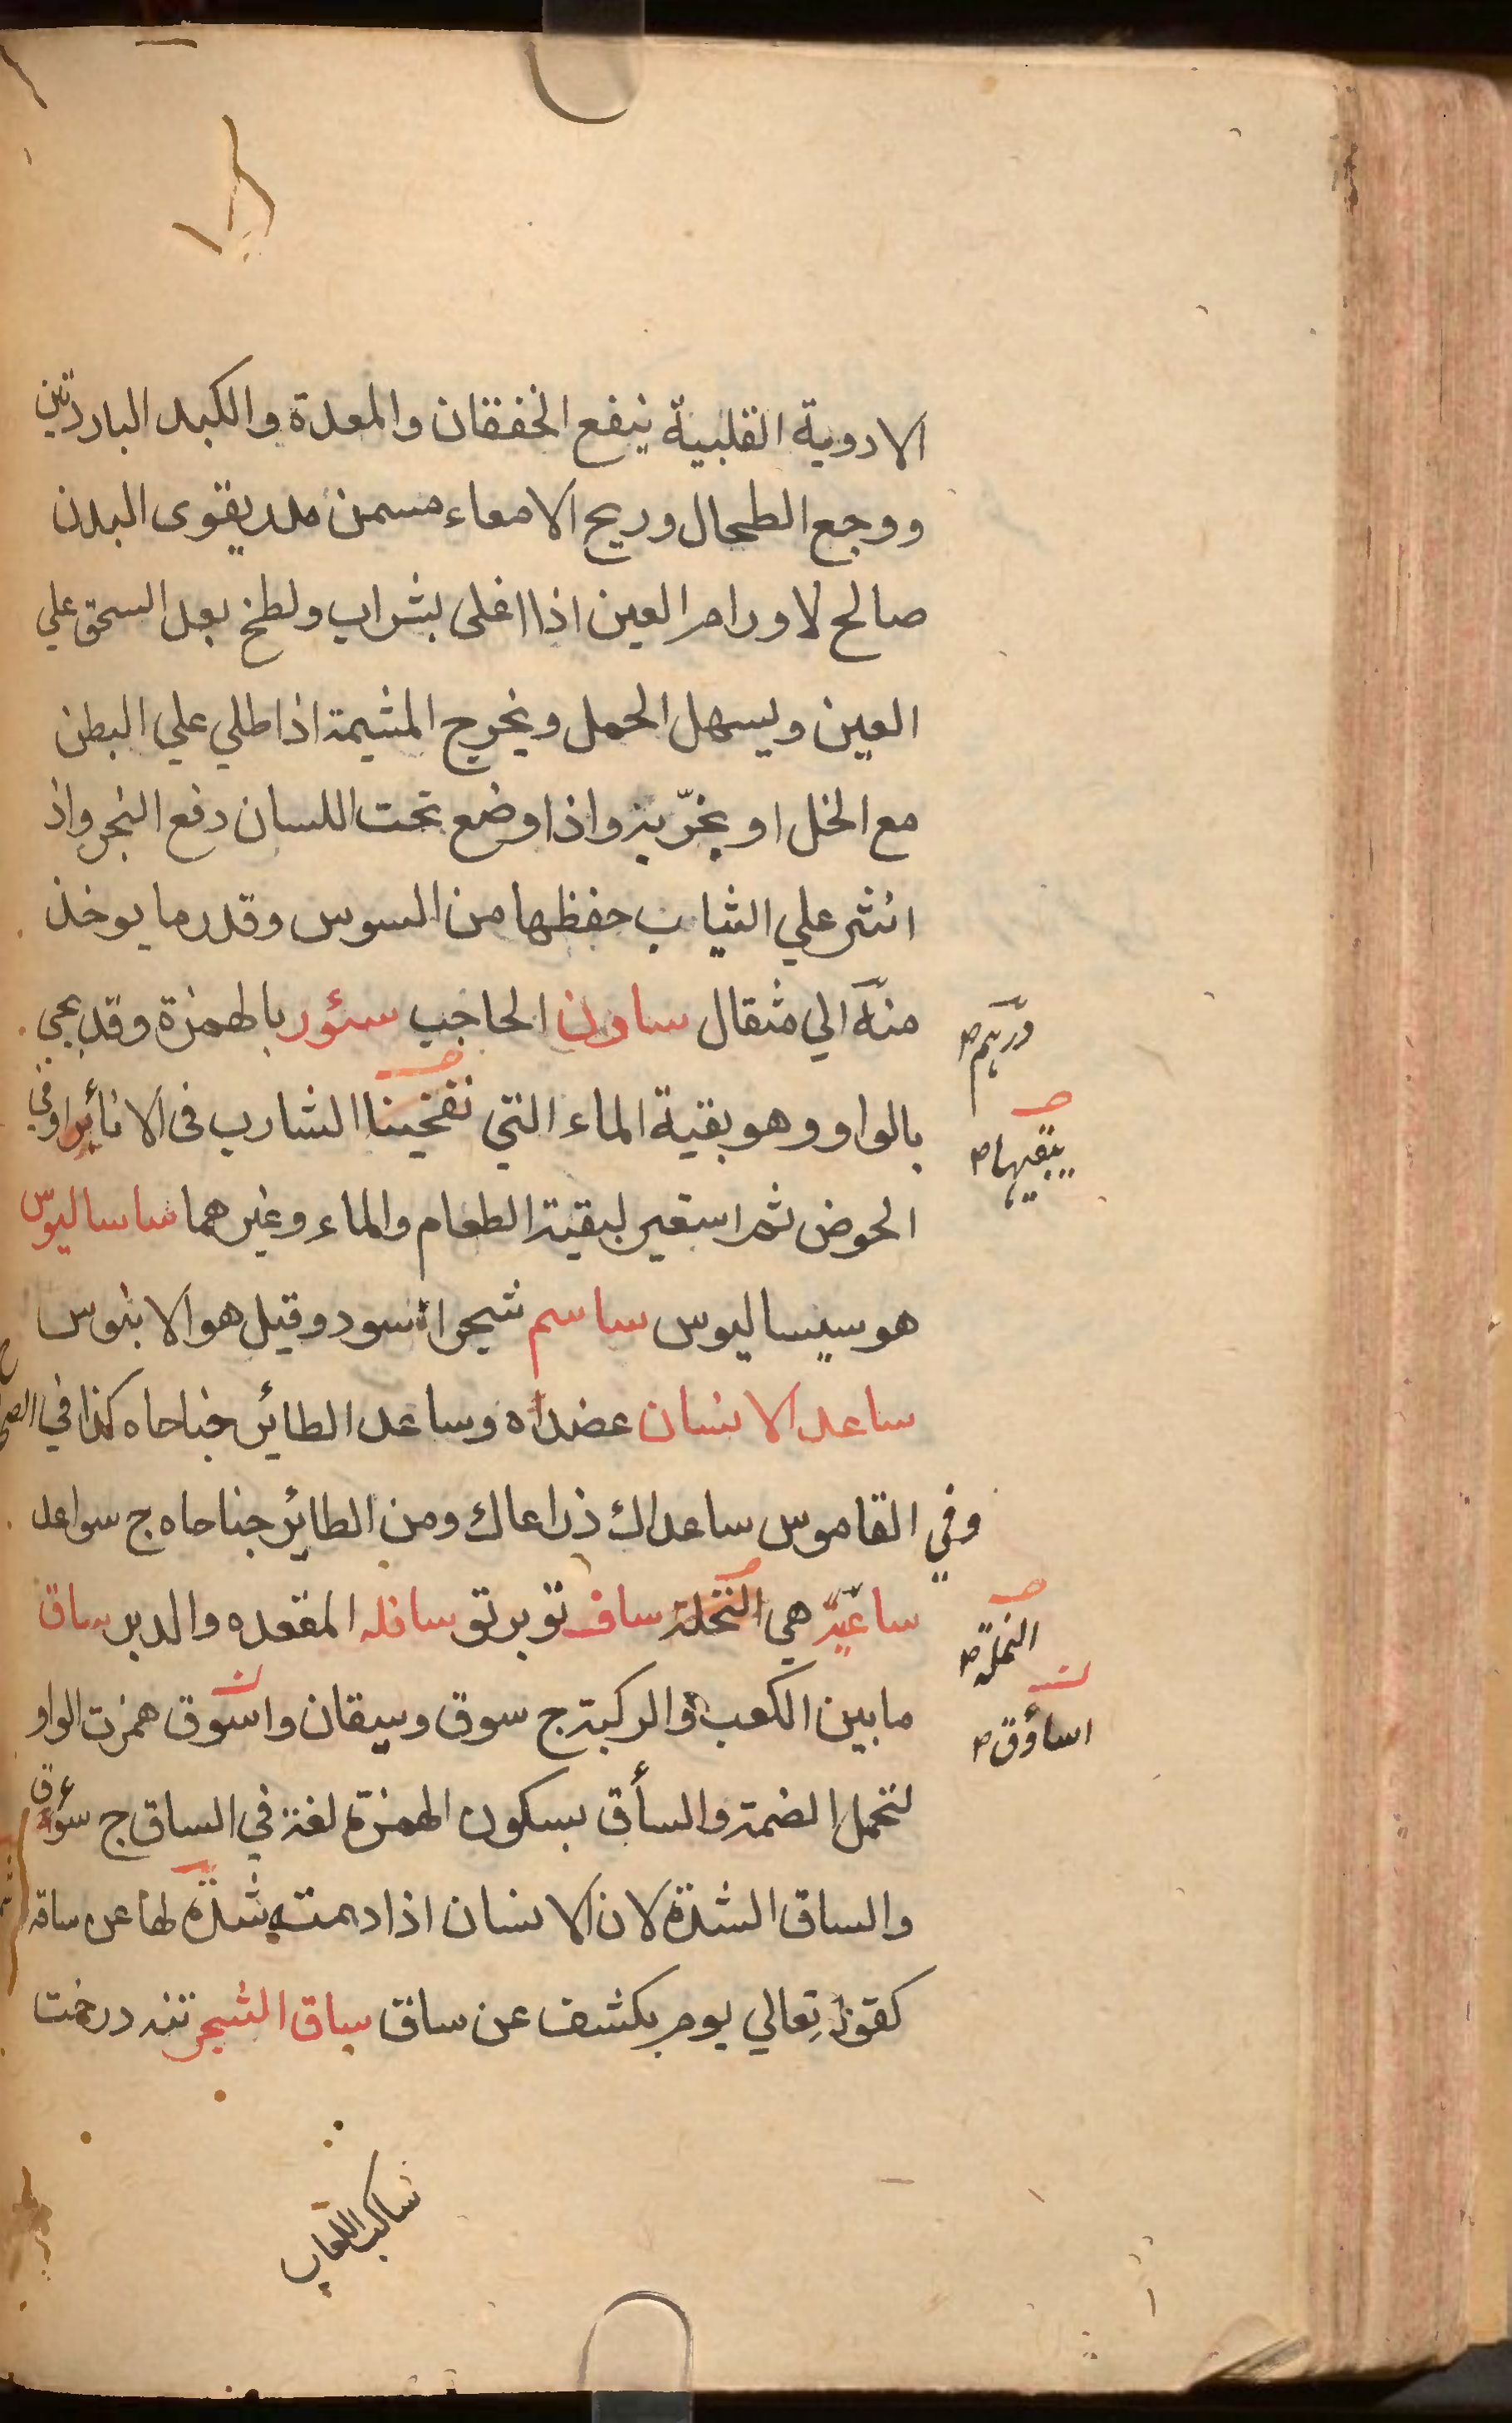 الادوية القلبية ينفع الخفقان والمعدة والكبد الباردتين
ووجع الطحال وريح الامعاء مسمن مدر يقوى البدن
صالح لاورام العين اذا اغلى بشراب ولطخ بعد السحق علي
العين ويسهل الحمل ويخرج المشيمة اذا طلي علي البطن
مع الخل او بخر به واذا وضع تحت اللسان دفع البخر واذ
انثر علي الثياب حفظها من السوس وقدر ما يوخذ
منه الي مثقال سادن الحاجب سئور بالهمزة وقد يجي
درهم ص
بالواو وهو بقية الماء التي الشارب فى الانائر اوفي
يبقيها ص
الحوض ثم استعير لبقية الطعام والماء وغيرهما ساساليوس
هو سيساليوس ساسم شجر اسود وقيل هو الابنوس
ساعد الانسان عضداه وساعد الطائر جناحاه كذا في الصحاح
وفي القاموس ساعداك ذراعاك ومن الطائر جناحاه ج سواعد
هي النخلة ساف تو بر تو سافله المقعده والدبر ساق
النملة ص
ما بين الكعب والركبة ج سوق وسيقان واسوق همزت الواو
اساؤق ص
لتحمل الضمة والسأق بسكون الهمزة لغة في الساق ج سؤق
والساق الشدة لان الانسان اذا دهمته شدة لها عن ساقه
كقوله تعالي يوم يكشف عن ساق ساق الشجر تنه درخت
ساكب اللعاب